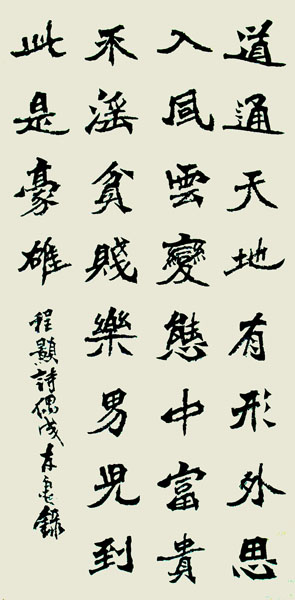 道通天地有形外思
入風雲變態中富貴
不淫貧賤樂男兒到
此是豪雄
程顥詩偶成錄